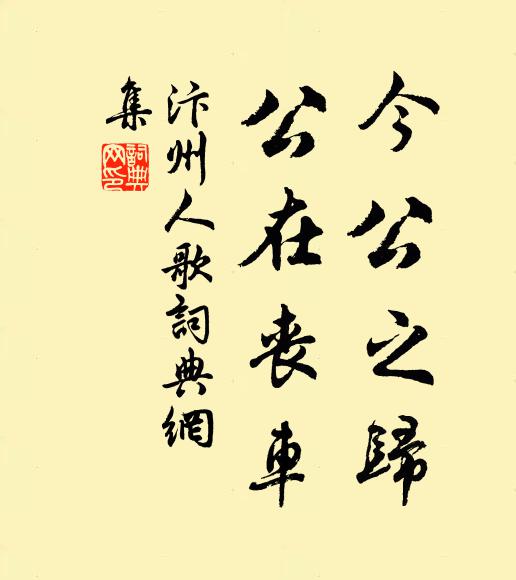 今公之歸
公在喪車
汴州人歌詞典網
集
詞典
网印